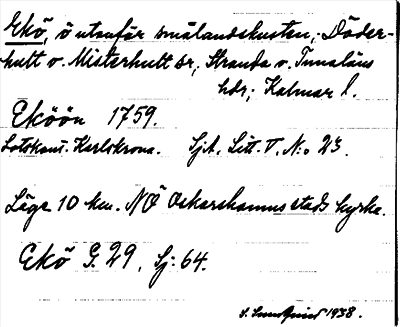 Ekö, ö utanför smålandskusten, Döder-
hult o. Misterhult sr, Stranda o. Tunaläns
hdr; Kalmar l.
Eköön 1759.
Lotskont. Karlskrona. Sj.A. Litt. V, N:o 23.
Läge 10 km. NÖ Oskarshamns stads kyrka.
Ekö G. 29, Sj: 64.
S. Sundqvist 1938.